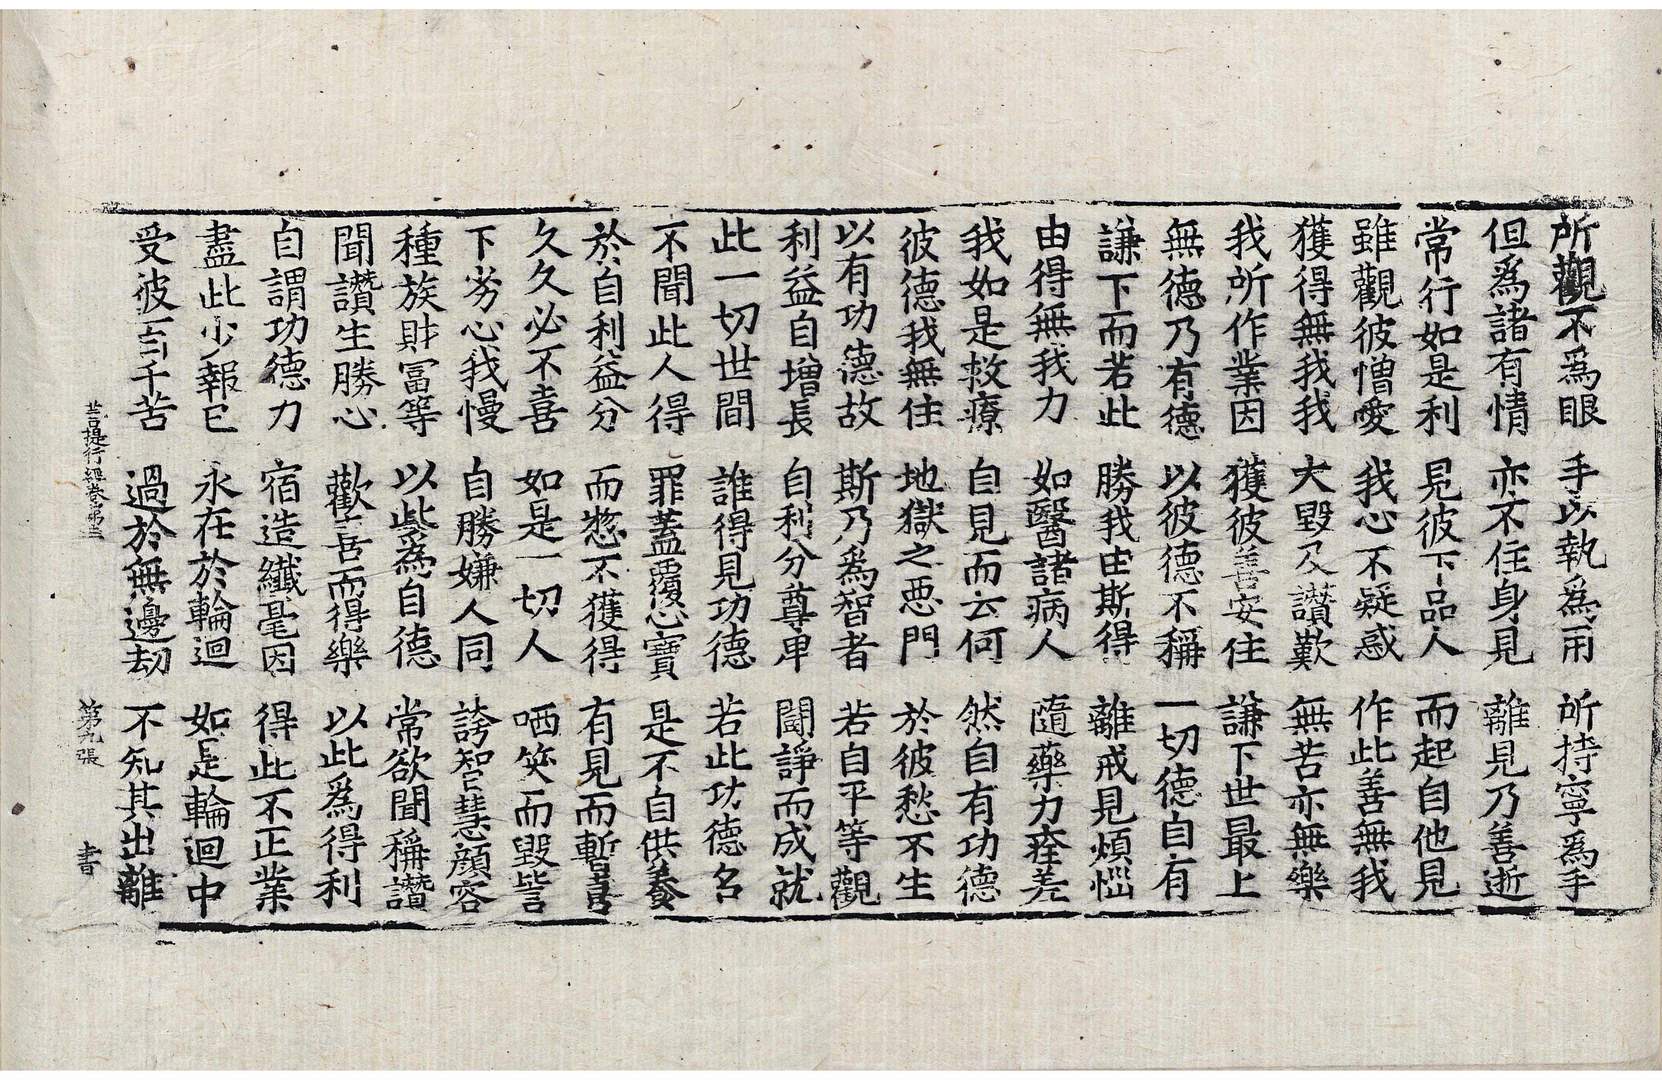 所觀不為眼 手以執為用 所持寧為手
但為諸有情 亦不住身見 離見乃善逝
常行如是利 見彼下品人 而起自他見
雖觀彼憎愛 我心不疑惑 作此善無我
獲得無我我 大毀及讚歎 無苦亦無樂
我所作業因 獲彼善安住 謙下世最上
無德乃有德 以彼德不稱 一切德自有
謙下而若此 勝我由斯得 離戒見煩惱
由得無我力 如醫諸病人 隨藥力痊差
我如是救療 自見而云何 然自有功德
彼德我無住 地獄之惡門 於彼愁不生
以有功德故 斯乃為智者 若自平等觀
利益自增長 自利分尊卑 鬪諍而成就
此一切世間 誰得見功德 若此功德名
不聞此人得 罪蓋覆心寶 是不自供養
於自利益分 而愁不獲得 有見而暫喜
久久必不喜 如是一切人 哂笑而毀訾
下劣心我慢 自勝嫌人同 誇智慧顏容
種族財富等 以此為自德 常欲聞稱讚
聞讚生勝心 歡喜而得樂 以此為得利
自謂功德力 宿造纖毫因 得此不正業
盡此少報已 永在於輪迴 如是輪迴中
受彼百千苦 過於無邊劫 不知其出離
菩提行經卷第三 第九張 書